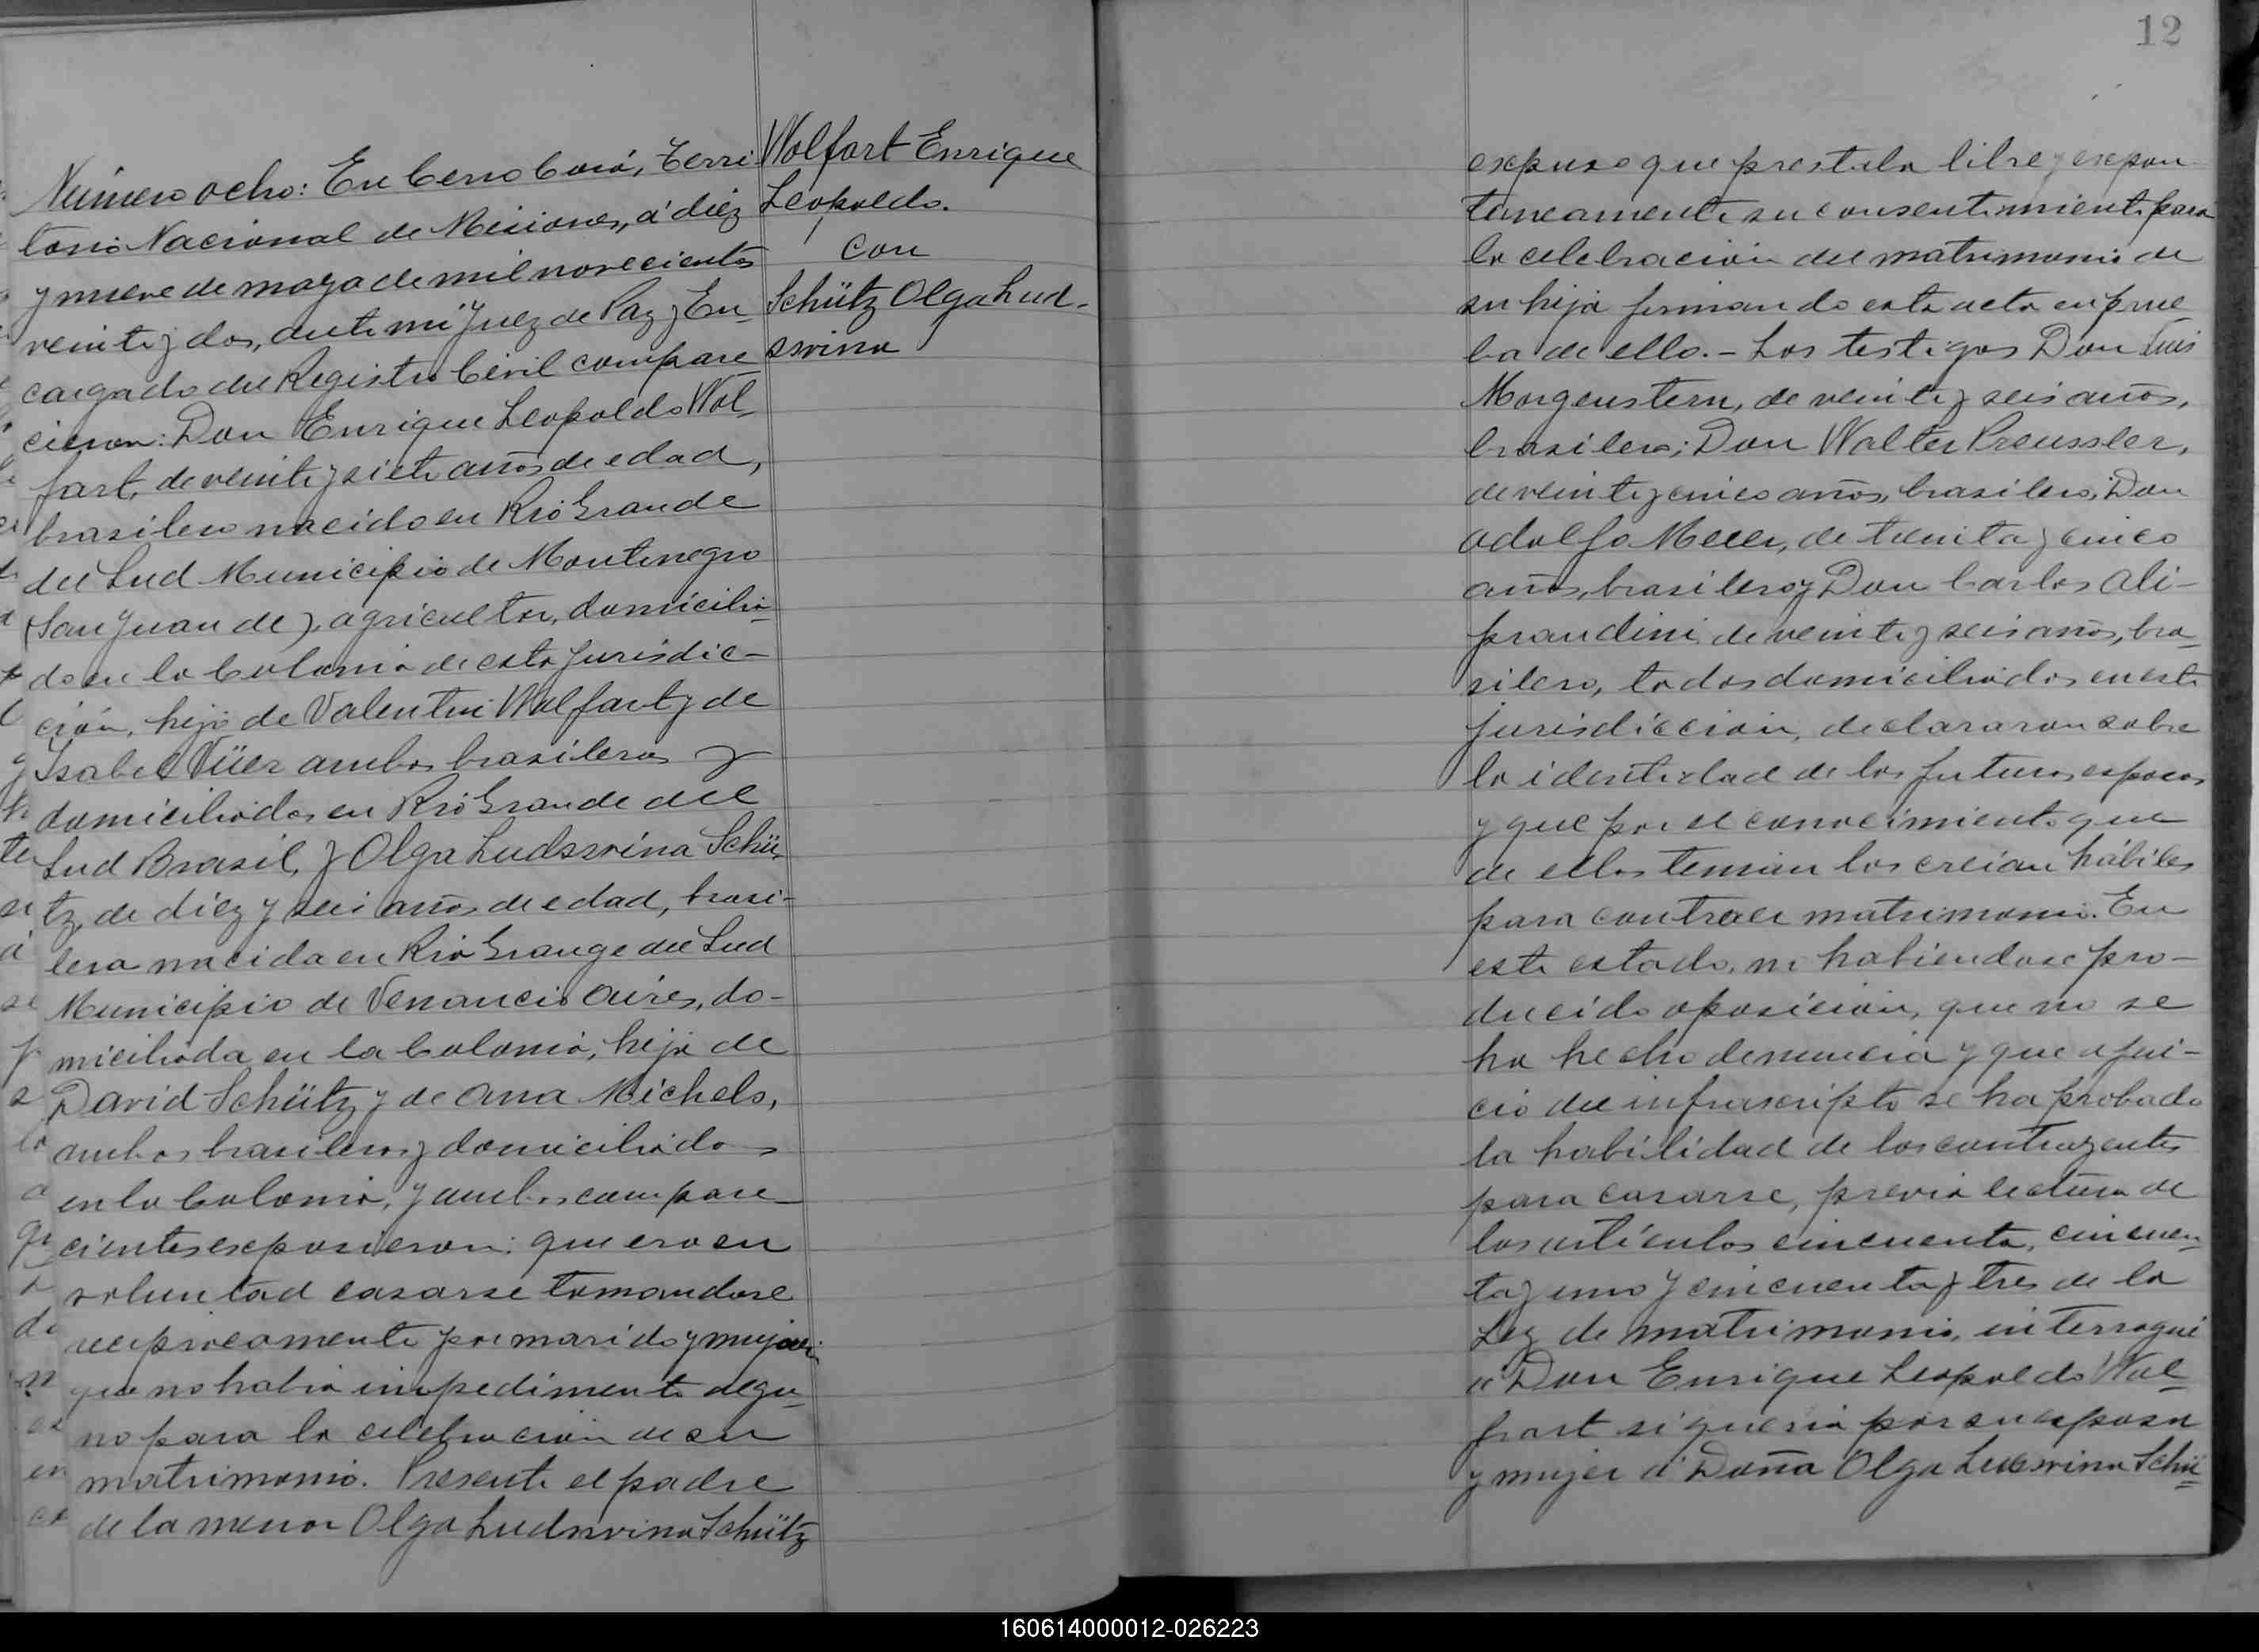 Número ocho: En Cerro Corá, Terri
torio Nacional de Misiones, á diez
y nueve de mayo de mil novecientos
veinte y dos, ante mi Juez de Paz y En-
cargado del Registro Civil compare
cieron: Don Enrique Leopoldo Wol-
fart, de veinte y siete años de edad,
brasilero nacido en Rio Grande
del Sud Municipio de Montenegro
(San Juan de), agricultor, domicilia-
do en la Colonia de esta jurisdic-
ción, hijo de Valentin Wolfart y de
Isabel ambos brasileros y
domiciliados en Rio Grande del
Sud Brasil, y Olga Ludsvina Schü-
tz, de diez y seis años de edad, brasi-
lera nacida en Rio Grange del Sud
Municipio de Venancio Aires, do-
miciliada en la Colonia, hija de
David Schütz y de Ana Michels,
ambos brasileros y domiciliados
en la Colonia, y ambos compare-
cientes expusieron: que era su
voluntad casarse tomandose
reciprocamente por marido y mujer;
que no habia impedimento algu-
no para la celebración de su
matrimonio. Presente el padre
de la menor Olga Ludsvina Schütz
Wolfart Enrique
Leopoldo.
con
Schütz Olga Lud-
svina
12
expuso que prestaba libre y expon
taneamente su consentimiento para
la celebración del matrimonio de
su hija firmando esta acta en prue
ba de ello.- Los testigos Don Luis
Morgenstern, de veinte y seis años,
brasilero; Don Walter Preussler,
de veinte y cinco años, brasilero; Don
Adolfo de treinta y cinco
años, brasilero y Don Carlos Ali-
prandini de veinte y seis años, bra-
silero, todos domiciliados en esta
jurisdicción, declararon sobre
la identidad de los futuros esposos
y que por el conocimiento que
de ellos tenian los creian hábiles
para contraer matrimonio. En
este estado, no habiendose pro-
ducido oposición, que no se
ha hecho denuncia y que a jui-
cio del infrascripto se ha probado
la habilidad de los contrayentes
para casarse, previa lectura de
los artículos cincuenta, cincuen-
ta y uno y cincuenta y tres de la
Ley de matrimonio, interrogué
a Don Enrique Leopoldo Wol-
frart si queria por su esposa
y mujer á Doña Olga Ludsvina Schü-
160614000012-026223